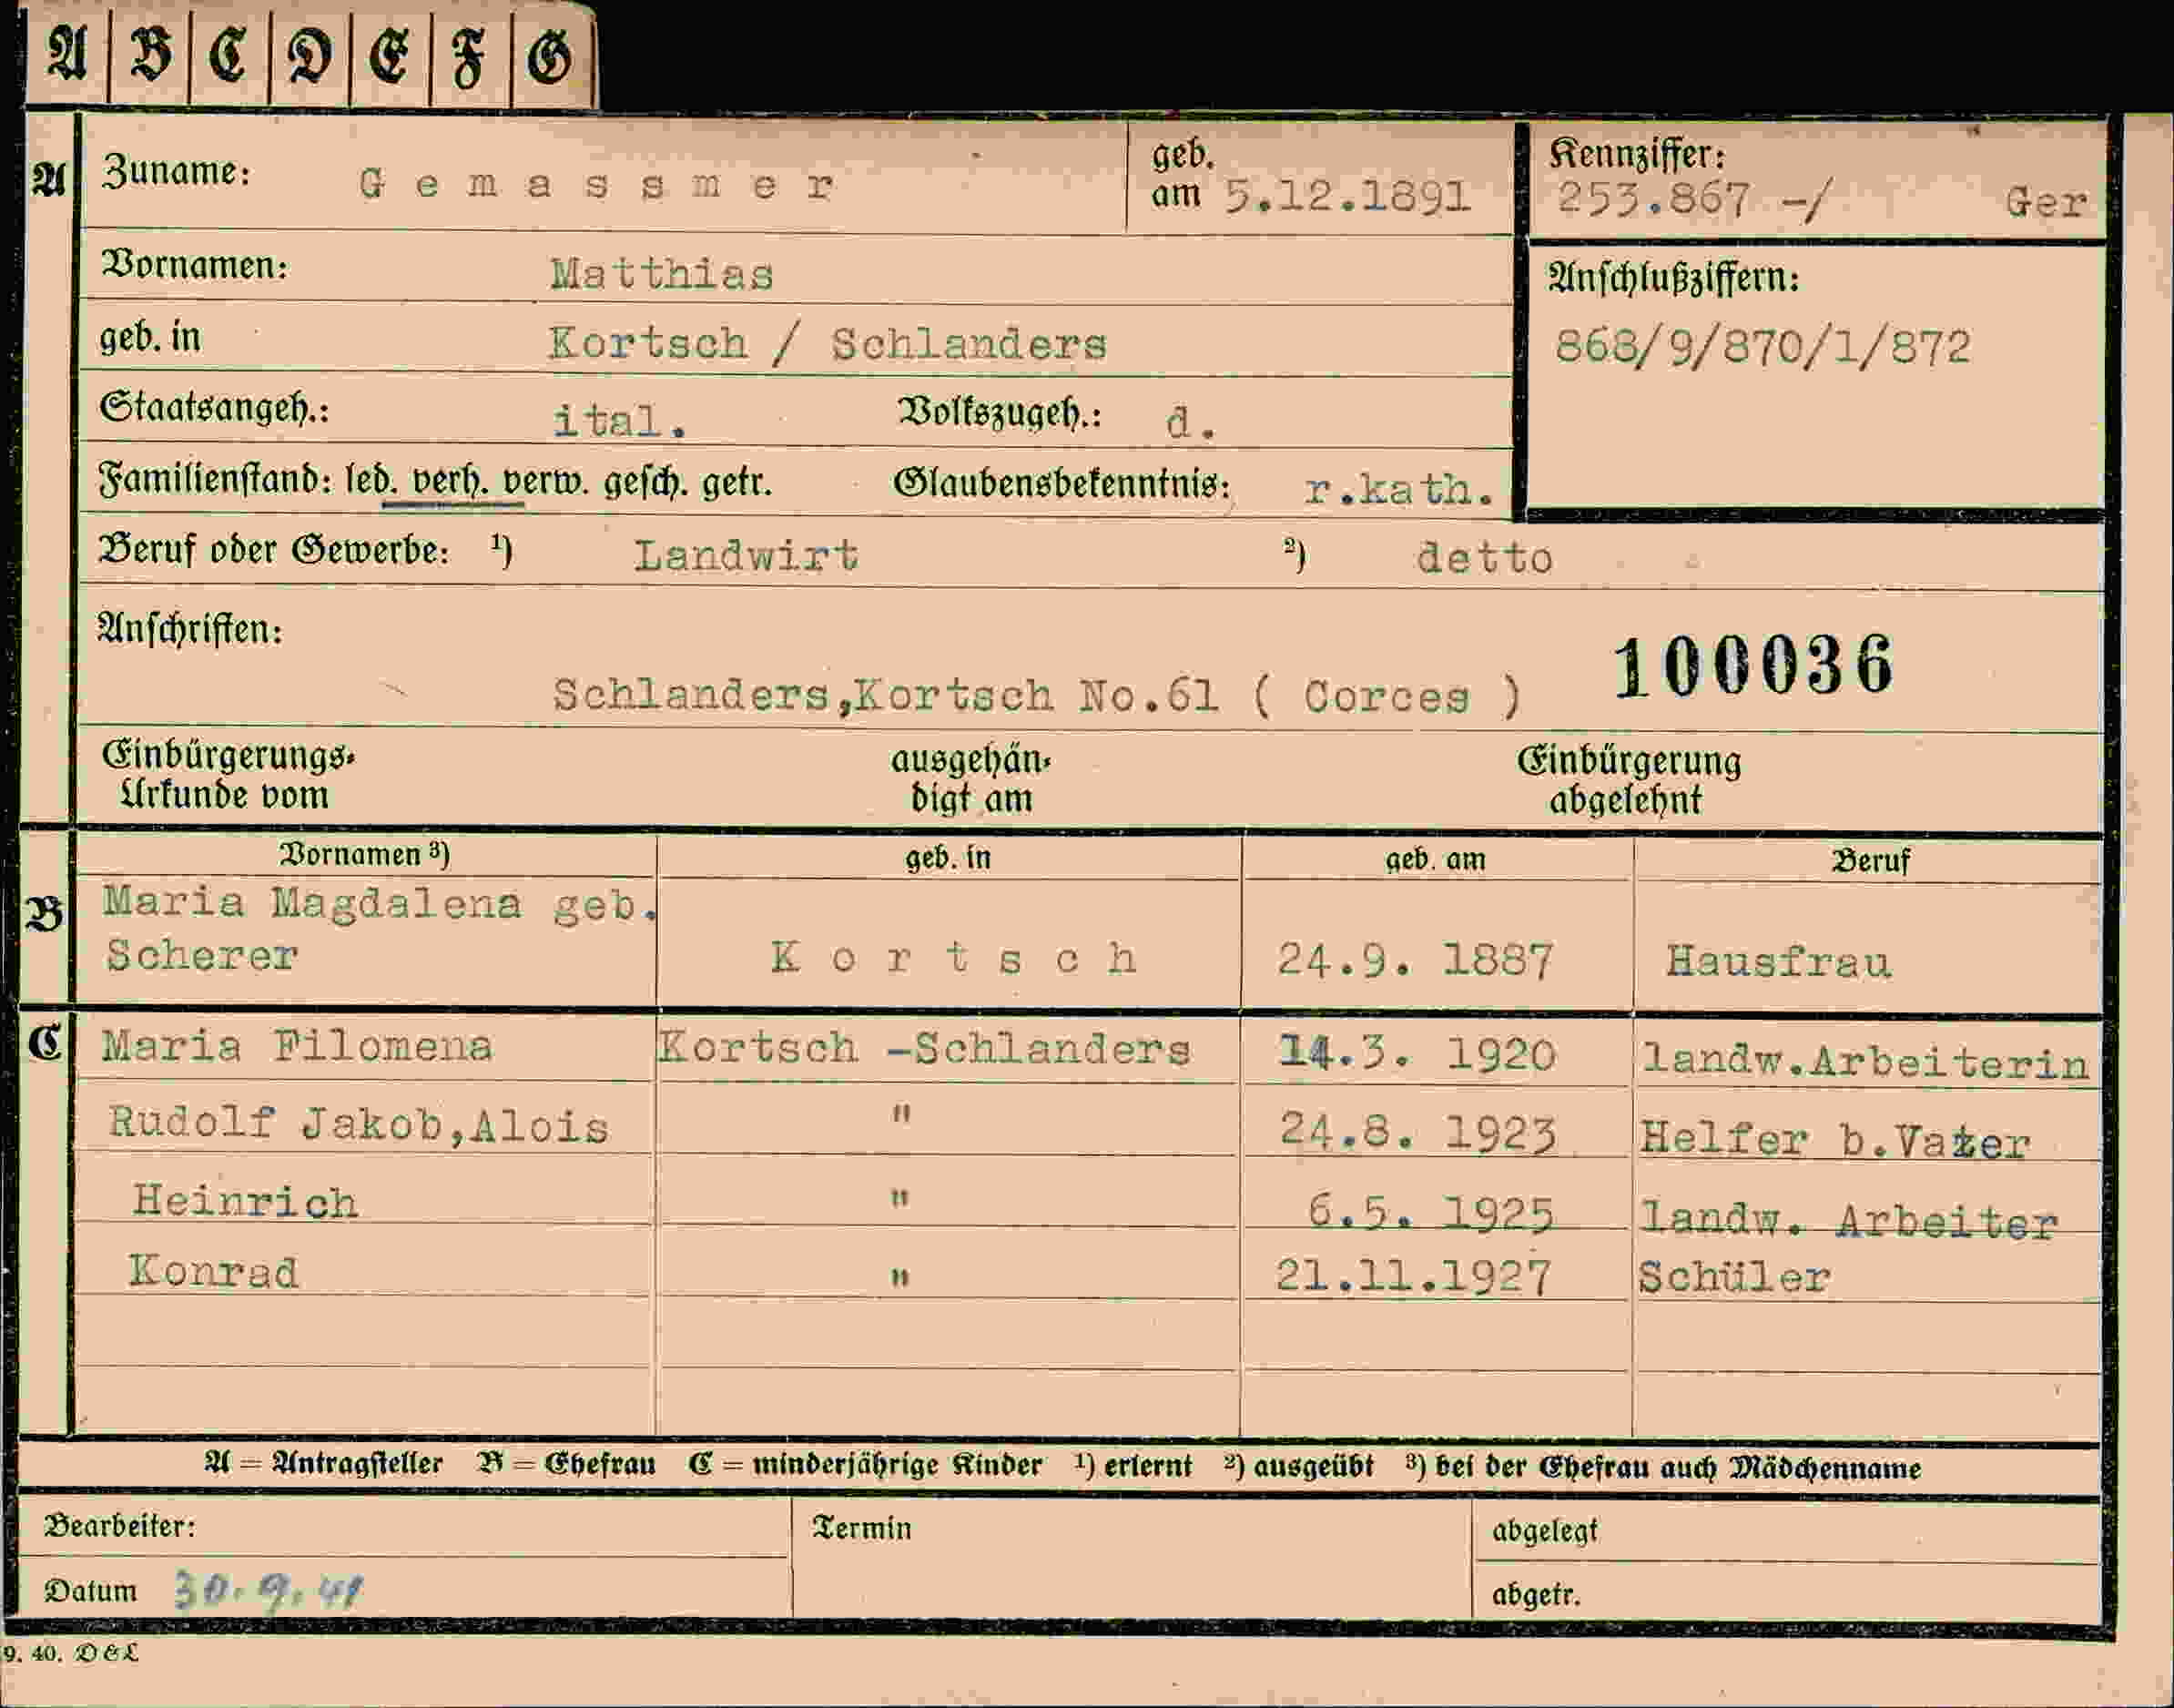 A B C D E F G
A Zuname: Gemassmer geb. am 5.12.1891 Kennziffer: 253.867 -/ Ger
Vornamen: Matthias Anschlußziffern:
geb. in Kortsch / Schlanders 868/9/870/1/872
Staatsangeh.: ital. Volkszugeh.: d.
Familienstand: led. verh. verw. gesch. getr. Glaubensbekenntnis: r.kath.
Beruf oder Gewerbe: ¹) Landwirt ²) detto
Anschriften: 100036
Schlanders,Kortsch No.61 ( Corces )
Einbürgerungs- ausgehän- Einbürgerung
Urkunde vom digt am abgelehnt
Vornamen ³) geb. in geb. am Beruf
B Maria Magdalena geb.
Scherer Kortsch 24.9. 1887 Hausfrau
C Maria Filomena Kortsch -Schlanders 14.3. 1920 landw.Arbeiterin
Rudolf Jakob,Alois " 24.8. 1923 Helfer b.Vater
Heinrich " 6.5. 1925 landw. Arbeiter
Konrad " 21.11.1927 Schüler
A = Antragsteller B = Ehefrau C = minderjährige Kinder ¹) erlernt ²) ausgeübt ³) bei der Ehefrau auch Mädchenname
Bearbeiter: Termin abgelegt
Datum 30.9.41 abgetr.
9. 40. D&L